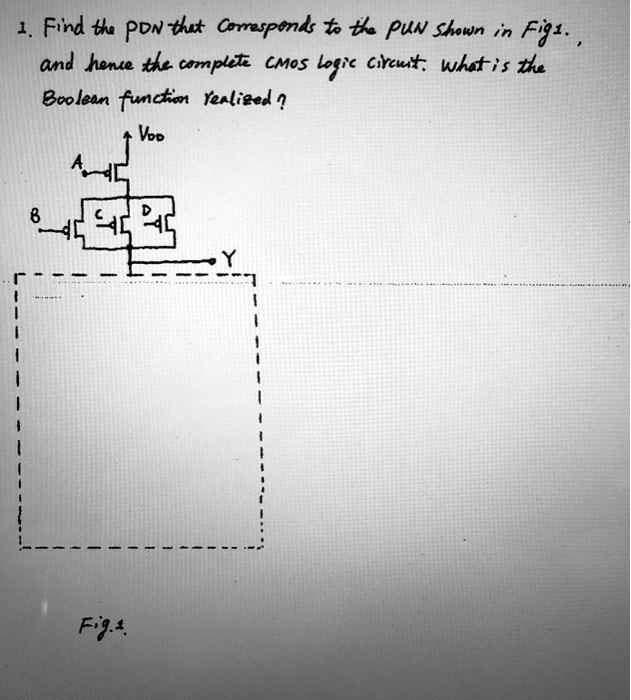 1. Find the PDN that Corresponds to the PUN Shown in Fig1.,
and hence the complete CMOS logic circuit. What is the
Boolean function realized?
VDD
A
B
C
D
Y
Fig.1.